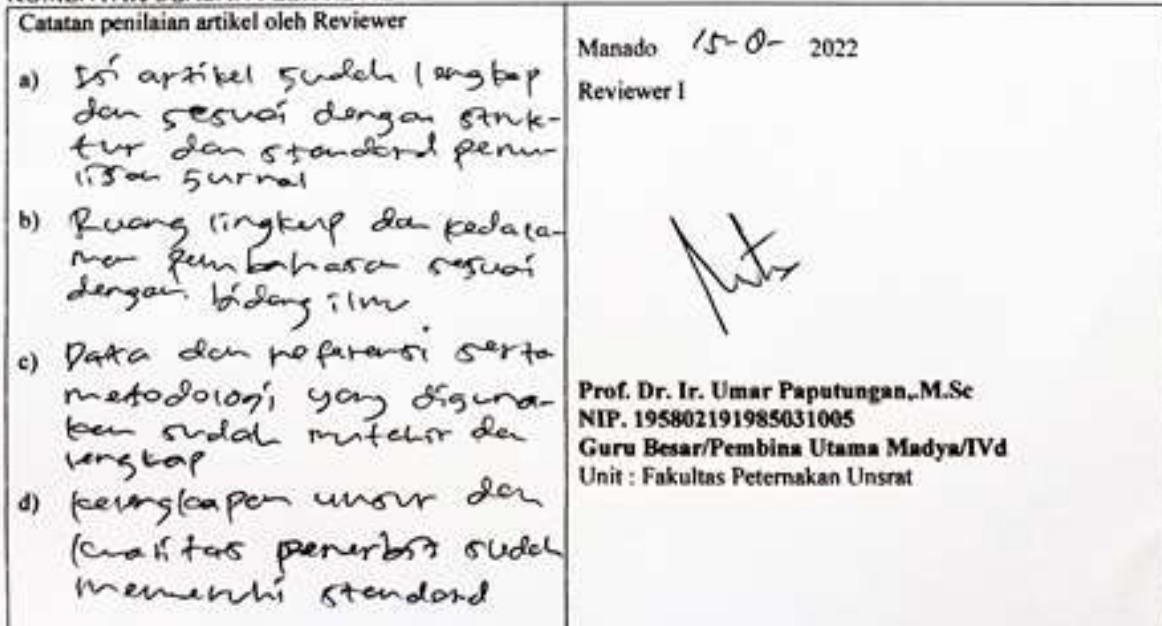 Catatan penilaian artikel oleh Reviewer
a) Isi artikel sudah lengkap
dan sesuai dengan struk-
tur dan standard penu-
lisan jurnal
b) Ruang lingkup dan kedala-
man pembahasan sesuai
dengan bidang ilmu
c) Data dan referensi serta
metodologi yang diguna-
kan sudah mutahir dan
lengkap
d) kelengkapan unsur dan
kualitas penerbit sudah
memenuhi standard
Manado 15- 2022
Reviewer I
Prof. Dr. Ir. Umar Paputungan,.M.Sc
NIP. 195802191985031005
Guru Besar/Pembina Utama Madya/IVd
Unit : Fakultas Peternakan Unsrat